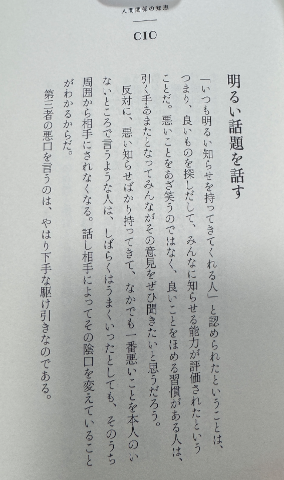 人間関係の知恵
010
明るい話題を話す
「いつも明るい知らせを持ってきてくれる人」と認められたということは、
つまり、良いものを探しだして、みんなに知らせる能力が評価されたという
ことだ。悪いことをあざ笑うのではなく、良いことをほめる習慣がある人は、
引く手あまたとなってみんながその意見をぜひ聞きたいと思うだろう。
反対に、悪い知らせばかり持ってきて、なかでも一番悪いことを本人のい
ないところで言うような人は、しばらくはうまくいったとしても、そのうち
周囲から相手にされなくなる。話し相手によってその陰口を変えていること
がわかるからだ。
第三者の悪口を言うのは、やはり下手な駆け引きなのである。